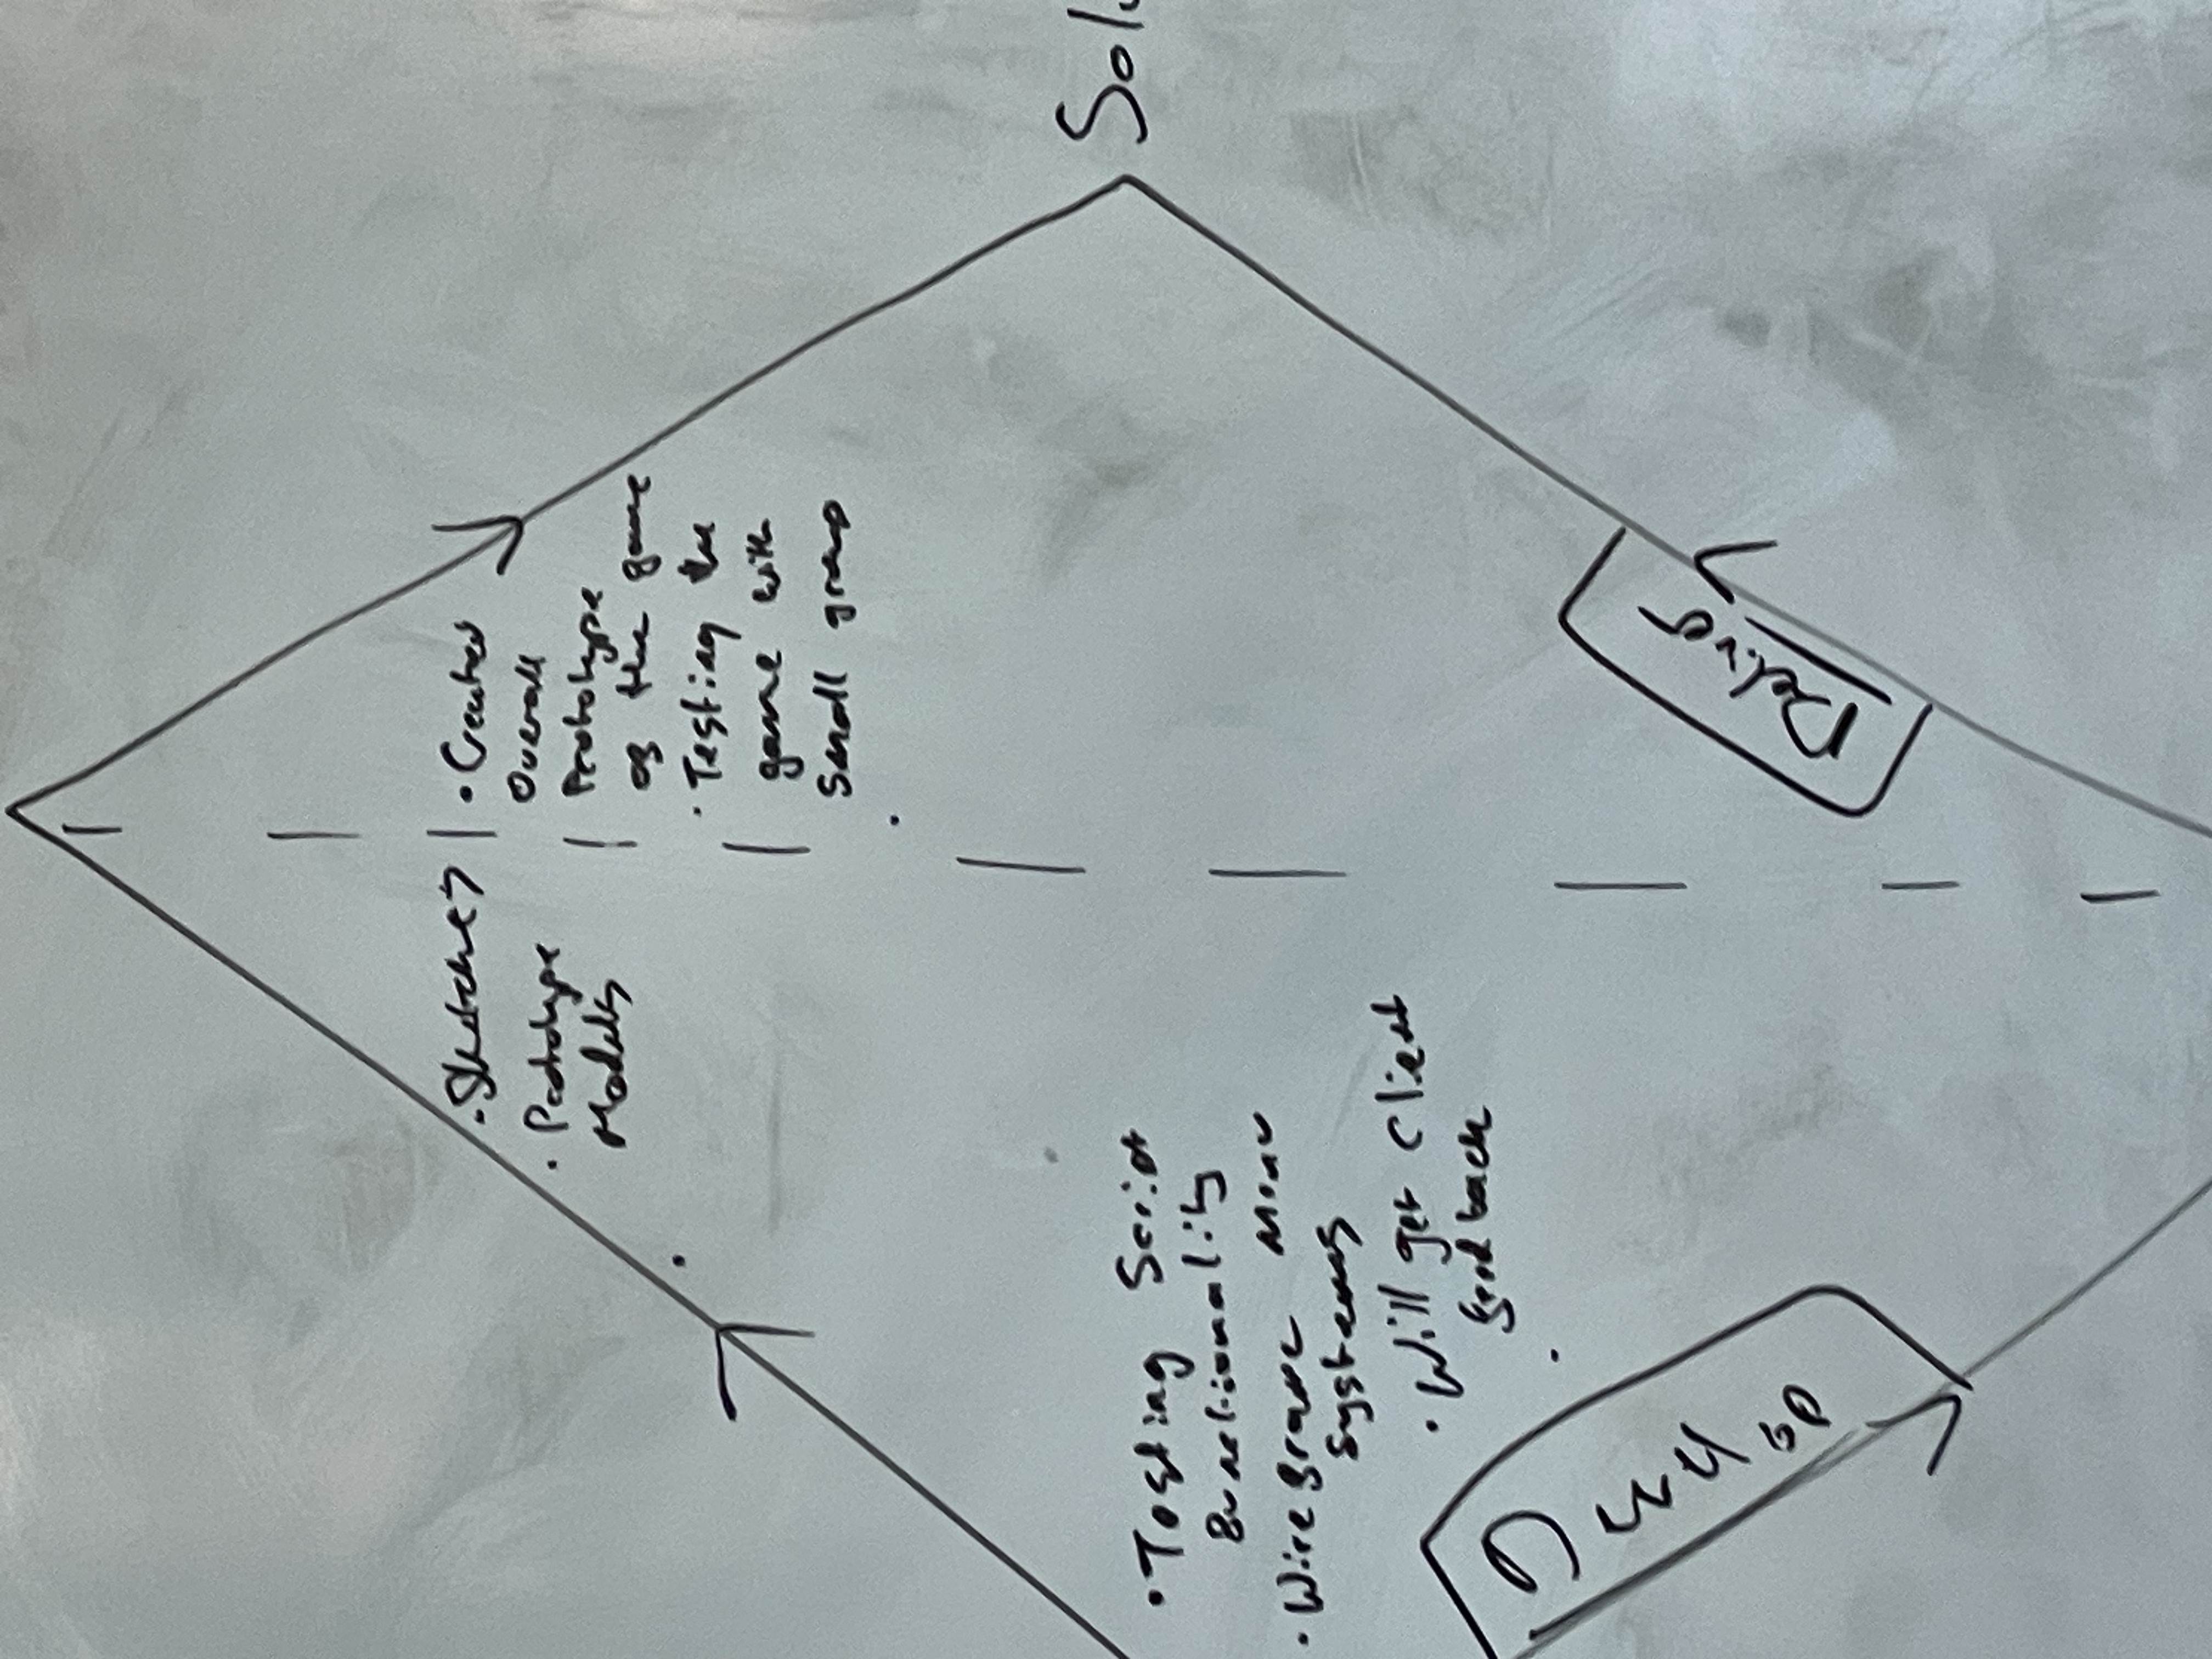 • Sketches
• Prototype
Models
• Testing Script
functionality
• Wireframe menu
systems
• Will get client
feedback
Develop
• Created
Overall
Prototype
of the game
• Testing the
game with
small group
Deliver
Solu